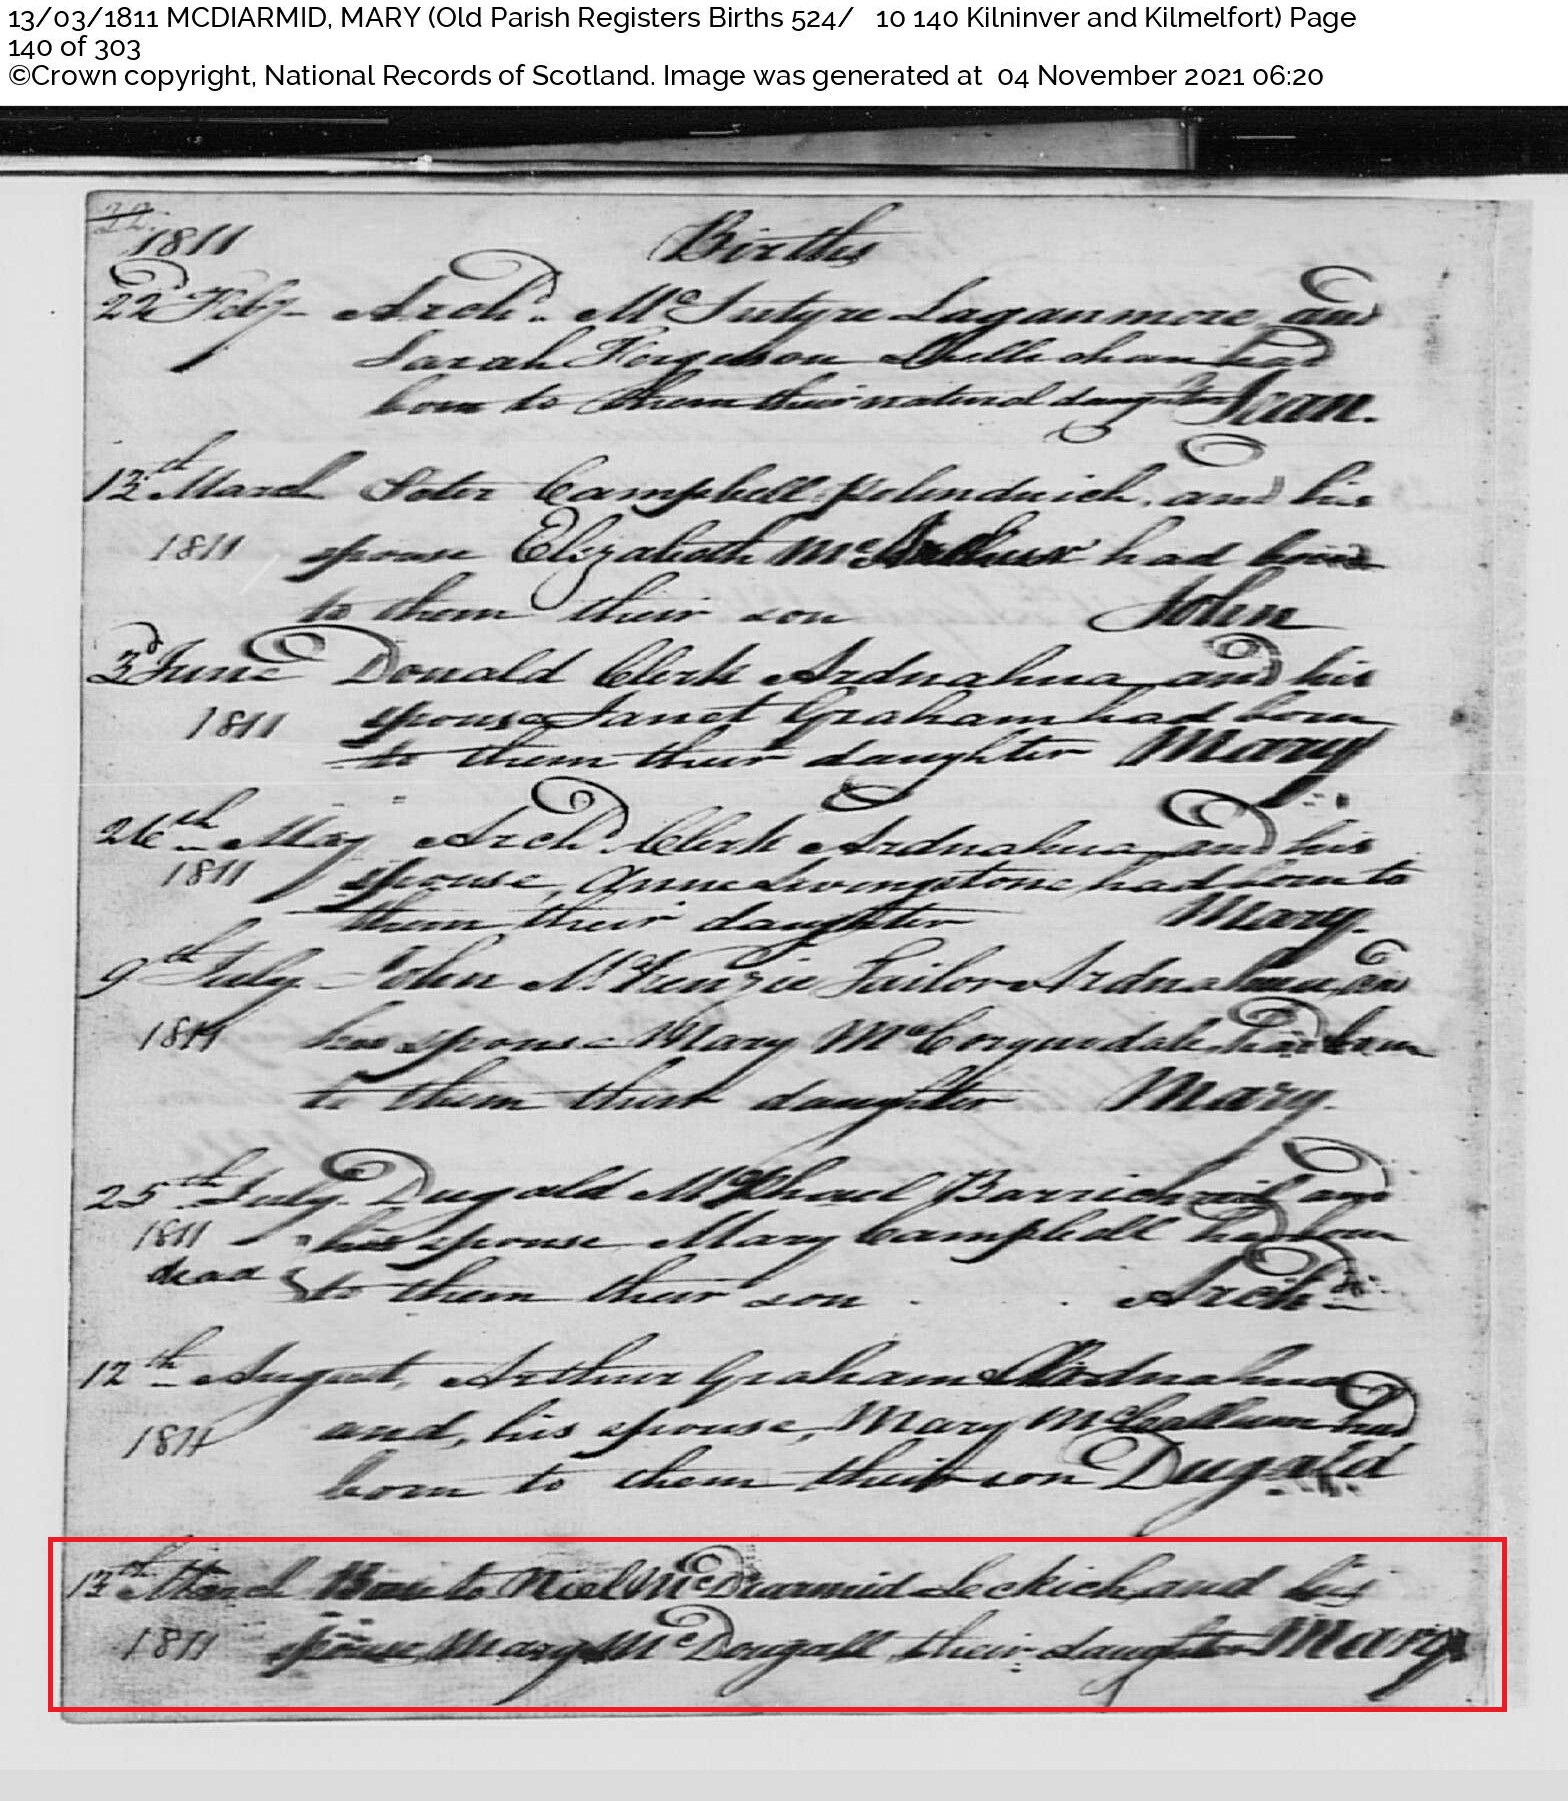 13/03/1811 MCDIARMID, MARY (Old Parish Registers Births 524/ 10 140 Kilninver and Kilmelfort) Page
140 of 303
©Crown copyright, National Records of Scotland. Image was generated at 04 November 2021 06:20
22
1811 Births
22d Feby Archd. McIntyre Laganmore and
Sarah Ferguson had
born to them their natural daughter Jean.
March Peter Campbell and his
1811 spouse Elizabeth McArthur had born
to them their son John
3d June Donald Clerk Ardnahua and his
1811 spouse Janet Graham had born
to them their daughter Mary
26th May Archd. Clerk Ardnahua and his
1811 spouse, Anne Livingstone had born to
them their daughter Mary.
9th July John McKenzie Tailor Ardnahua, and
1811 his spouse Mary McCorquodale, had born
to them their daughter Mary.
25th July Dugald McPhael Barrichreil and
1811 his spouse Mary Campbell had born
dead to them their son Archd.
12th August, Arthur Graham Ardnahua
1811 and, his spouse, Mary McCallum had
born to them their son Dugald
13th March Born to Niel McDiarmid Leckich and his
1811 spouse Mary McDougall their daughter Mary